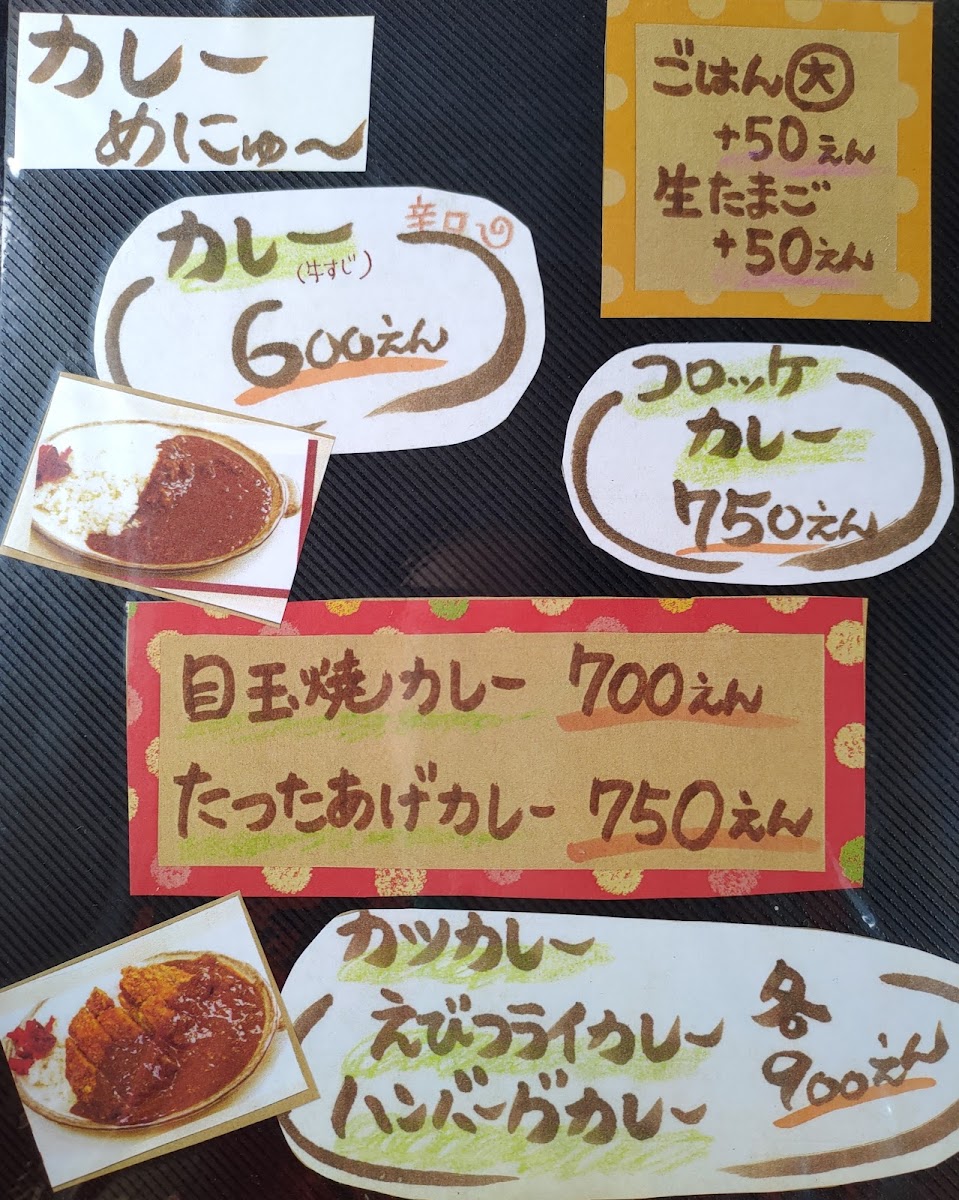 カレー
めにゅ〜
ごはん大
+50えん
生たまご
+50えん
カレー
(牛すじ)
辛口
600えん
コロッケ
カレー
750えん
目玉焼カレー 700えん
たったあげカレー 750えん
カツカレー
えびフライカレー
ハンバーグカレー
各
900えん